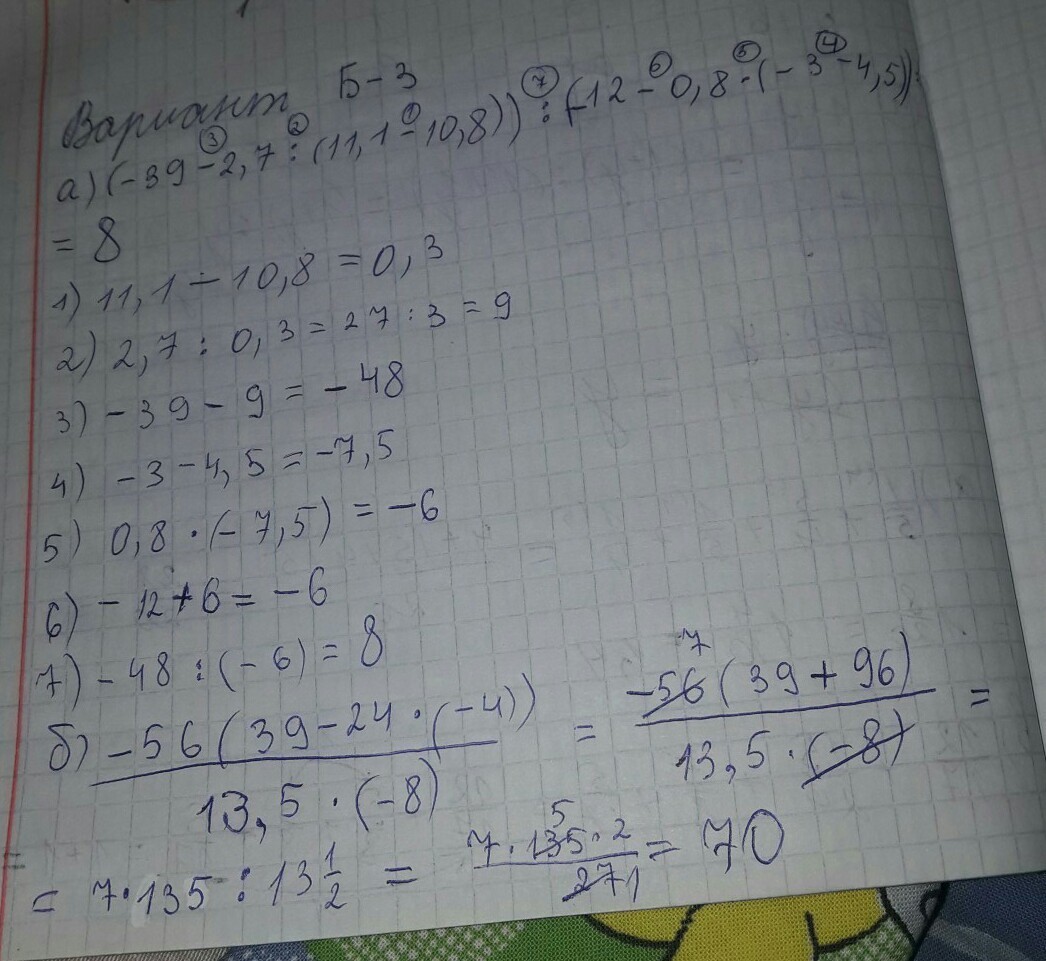 Вариант Б-3
а) (-39 - 2,7 : (11,1 - 10,8)) : (-12 - 0,8 · (-3 - 4,5)) =
= 8
1) 11,1 - 10,8 = 0,3
2) 2,7 : 0,3 = 27 : 3 = 9
3) - 39 - 9 = - 48
4) - 3 - 4,5 = -7,5
5) 0,8 · (- 7,5) = -6
6) - 12 + 6 = - 6
7) - 48 : (- 6) = 8
б) -56 (39 - 24 · (-4)) / 13,5 · (-8) = -56 7 (39 + 96) / 13,5 · (-8) =
= 7 · 135 : 13 1/2 = 7 · 135 5 · 2 / 27 1 = 70